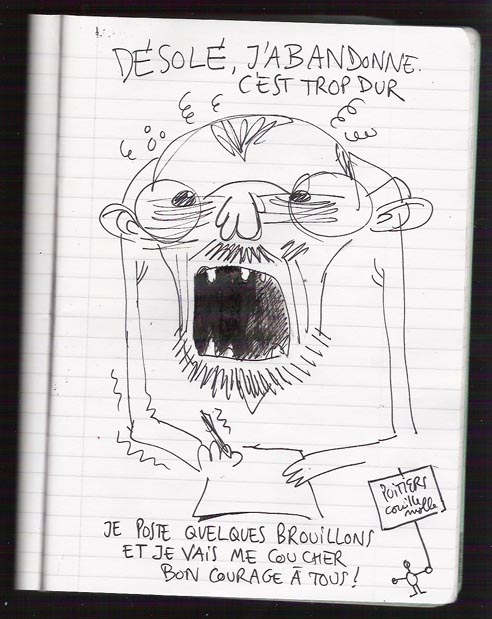 DÉSOLÉ, J'ABANDONNE.
C'EST TROP DUR
POITIERS
couille
molle
JE POSTE QUELQUES BROUILLONS
ET JE VAIS ME COUCHER
BON COURAGE À TOUS !